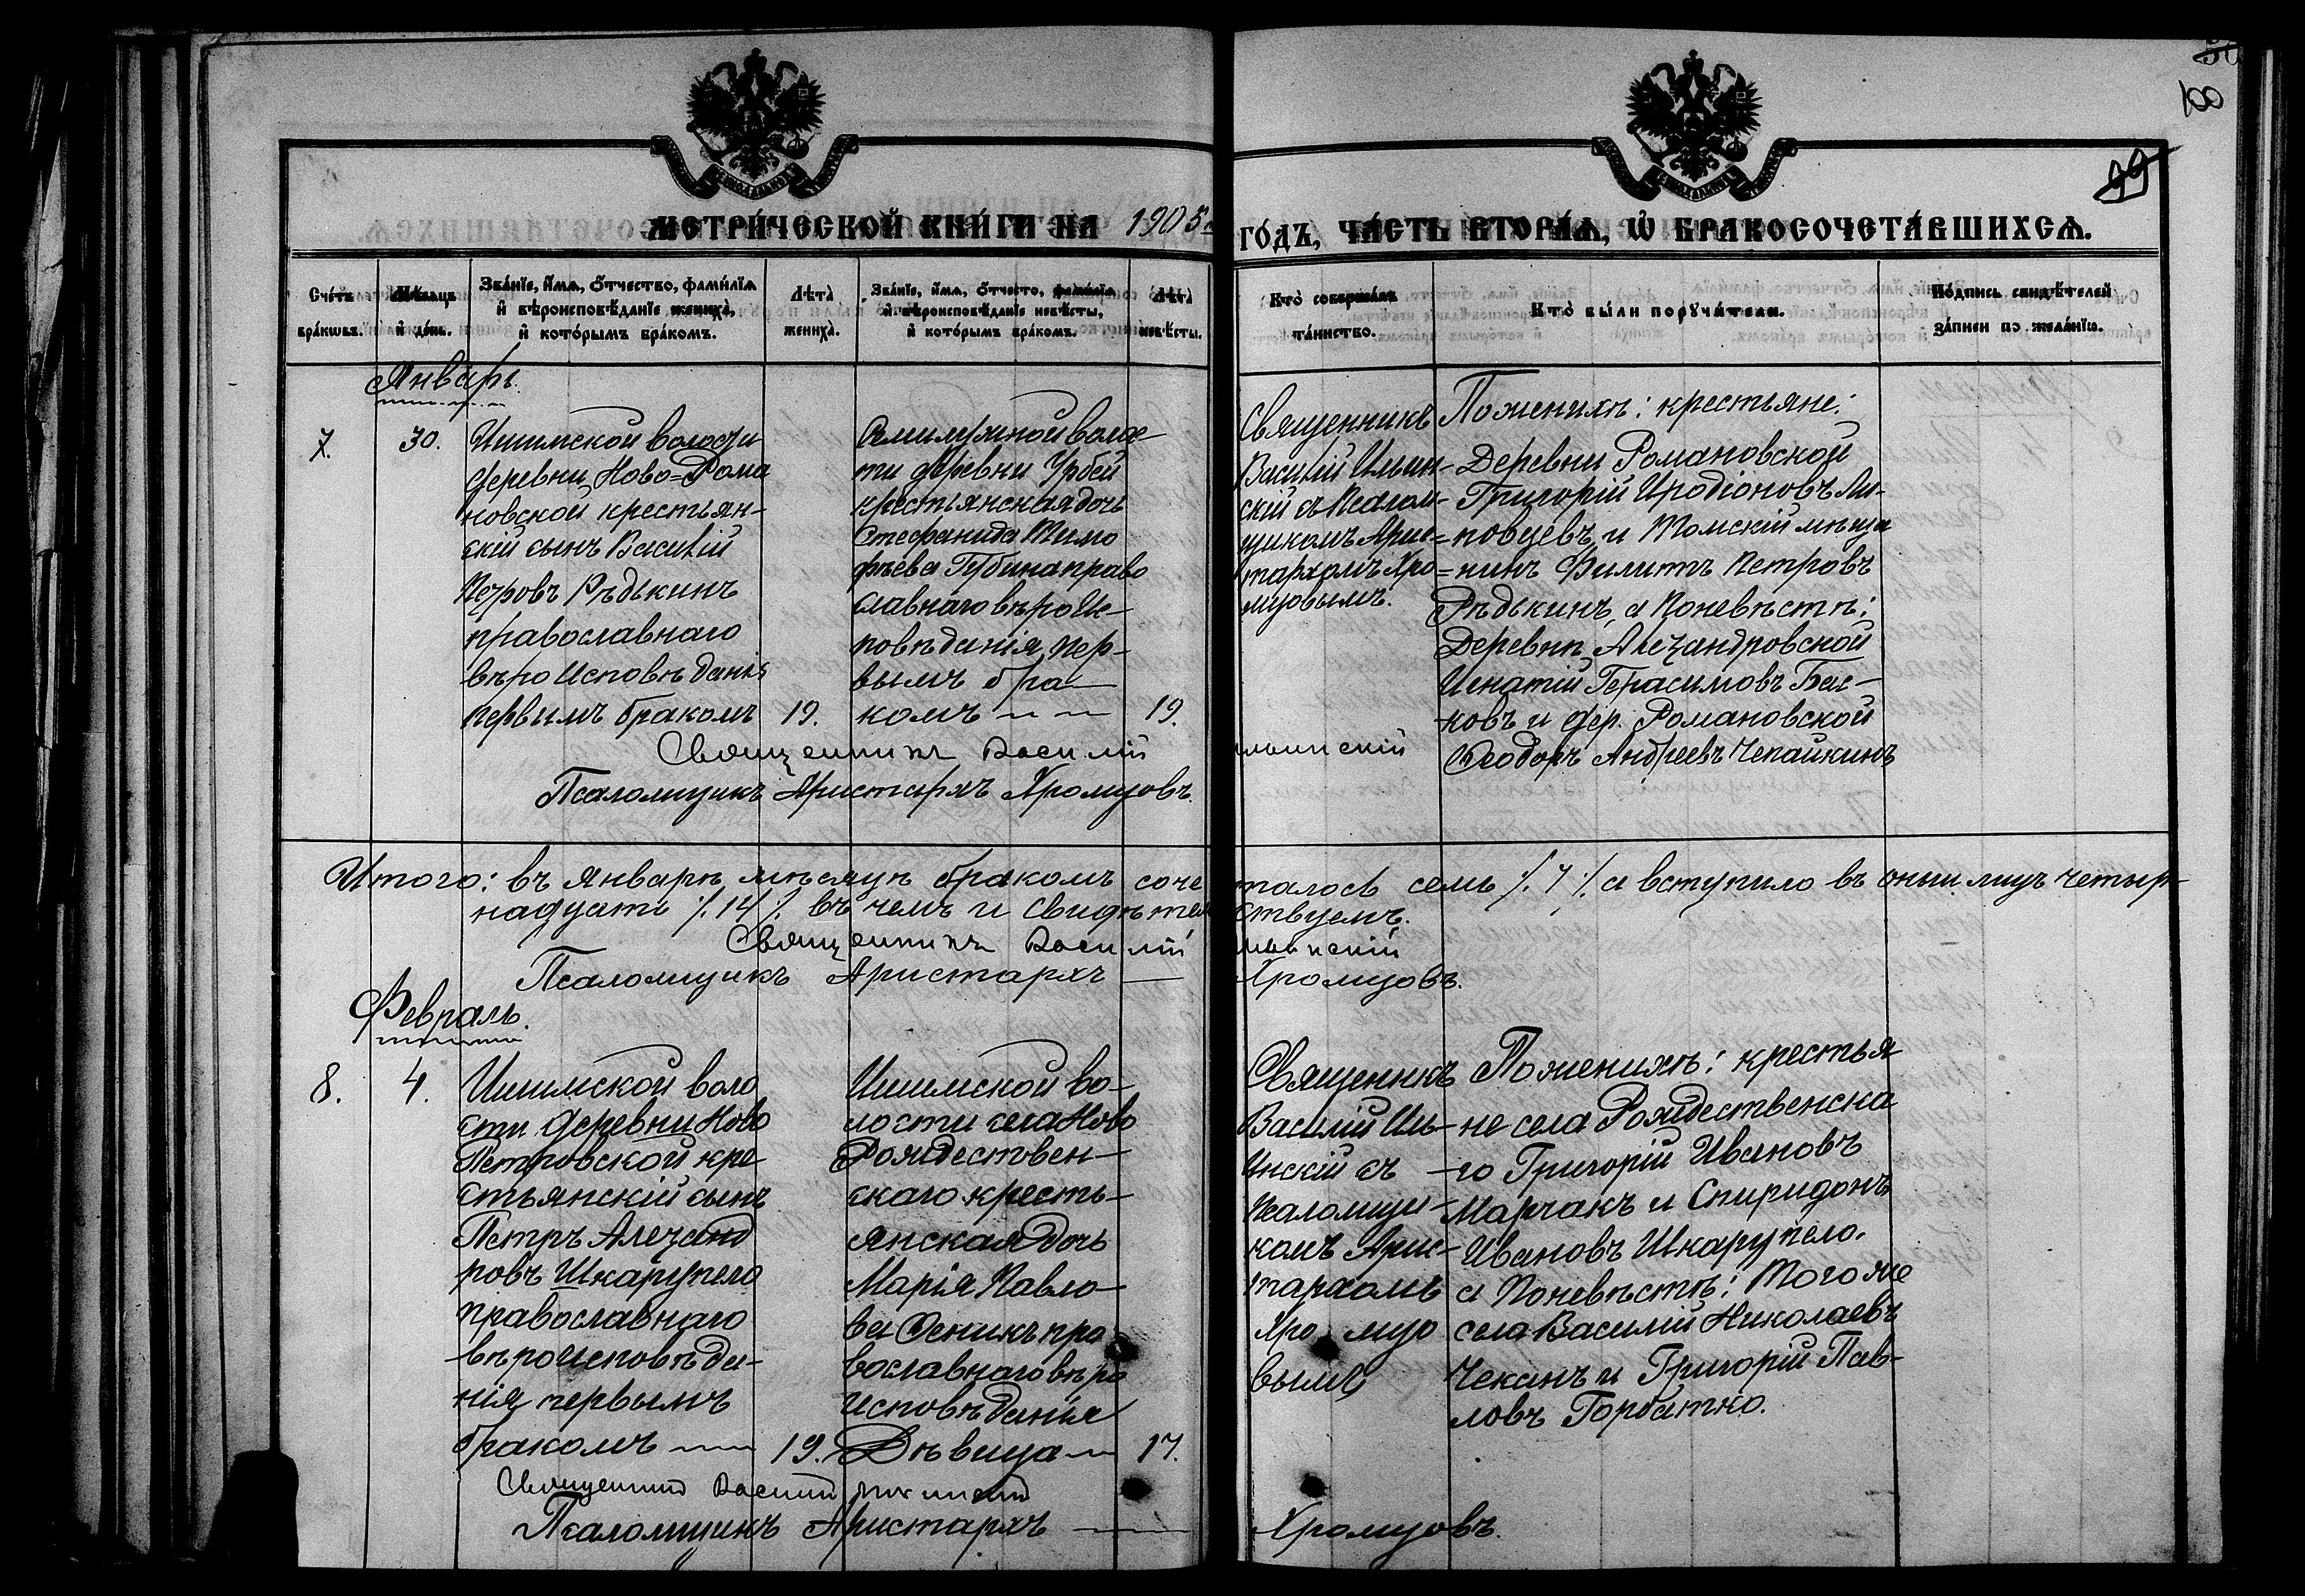 50
100
99
МЕТРИ́ЧЕСКОЙ КНИ́ГИ НА 1905 ГО́ДЪ, ЧА́СТЬ ВТОРА́Я, Ѡ҆ БРАКОСОЧЕТА́ВШИХСѦ.
Сче́тъ бра́кѡвъ.
Мѣ́сѧцъ и҆ де́нь.
Зва́нїе, и҆́мѧ, о҆́тчество, фами́лїѧ и҆ вѣроисповѣ́данїе жениха̀, и҆ кото́рымъ бра́комъ.
Лѣ́та жениха̀.
Зва́нїе, и҆́мѧ, о҆́тчесто, фами́лїѧ и҆ вѣроисповѣ́данїе невѣ́сты, и҆ кото́рымъ бра́комъ.
Лѣ́та невѣ́сты.
Кто̀ соверша́лъ та́инство.
Кто̀ бы́ли порꙋчи́тели.
По́дпись свидѣ́телей за́писи по жела́нїю.
Январь.
7.
30.
Ишимской волости
деревни Ново=Рома
новской крестьян-
скій сынъ Василій
Петровъ Рѣдькинъ
православнаго
вѣроисповѣданія
первымъ бракомъ
19.
волос-
ти деревни Урбей
крестьянская дочь
Стефанида Тимо
фѣева Губина право
славнаго вѣроис-
повѣданія, пер-
вымъ бра-
комъ
19.
Священникъ
Василій Ильин-
скій съ Псалом-
щикомъ Арис=
тархомъ Хро=
мцовымъ.
Поженихѣ: крестьяне:
Деревни Романовской
Григорій Иродіоновъ Ли-
повцевъ, и Томскій мѣща
нинъ Филиппъ Петровъ
Рѣдькинъ, а Поневѣстѣ:
Деревни Алезандровской
Игнатій Герасимовъ
и дер. Романовской
Ѳеодоръ Андреевъ Чепайкинъ
Священникъ Василій Ильинскій
Псаломщикъ Аристархъ Хромцовъ.
Итого: въ Январѣ мѣсяцѣ бракомъ сочеталось семь /.7./, а вступило въ оныи лицъ четыр-
надцать /.14./. въ чемъ и Свидѣтельствуемъ.
Священникъ Василій Ильинскій
Псаломщикъ Аристархъ — Хромцовъ.
Февраль.
8.
4.
Ишимской воло
сти деревни Ново
Петровской кре
стьянскій сынъ
Петръ Алезанд
ровъ Шкарупело
православнаго
вѣроисповѣда-
нія первымъ
бракомъ
19.
Ишимской во-
лости села Ново
Рождествен-
скаго кресть-
янская дочь
Марія Павло-
ва Осникъ пра
вославнаго вѣро
исповѣданія
Дѣвица
17.
Священникъ
Василій Иль-
инскій съ
Псаломщи-
комъ Арис-
тархомъ
Хромцо
вымъ
Поженихѣ: крестья
не села Рождественска
го Григорій Ивановъ
Марчакъ и Спиридонъ
Ивановъ Шкарупело.
а Поневѣстѣ: Того же
села Василій Николаевъ
Чеканъ и Григорій Пав-
ловъ Горбатко.
Священникъ Василій Ильинскій
Псаломщикъ Аристархъ — Хромцовъ.